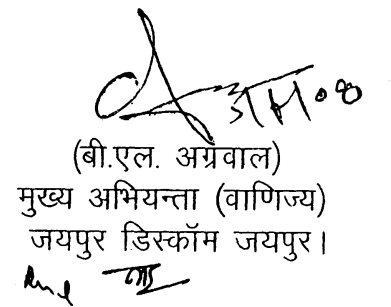 (बी.एल. अग्रवाल)
मुख्य अभियन्ता (वाणिज्य)
जयपुर डिस्कॉम जयपुर।